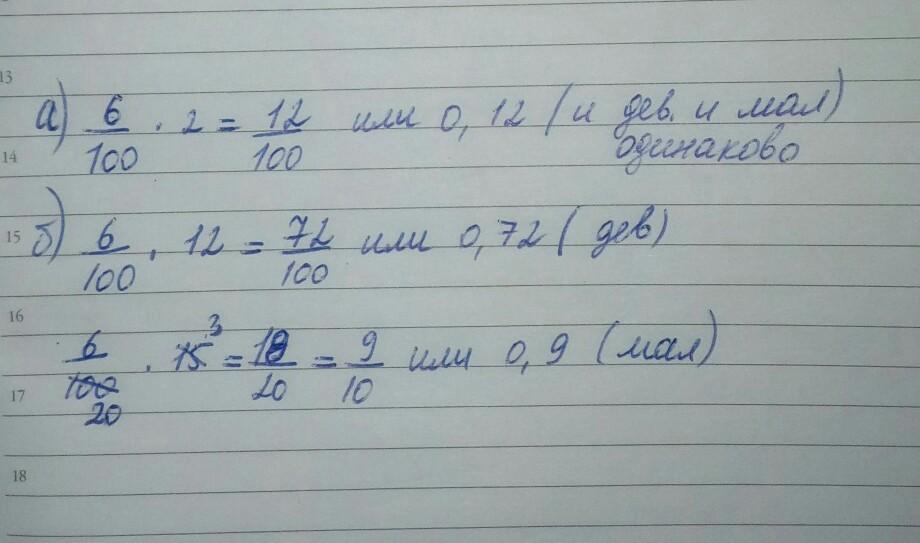 13
а) 6/100 · 2 = 12/100 или 0,12 (и дев. и мал)
14 одинаково
15 б) 6/100 · 12 = 72/100 или 0,72 (дев)
16
6/100 20 · 15 3 = 18/20 = 9/10 или 0,9 (мал)
17
18